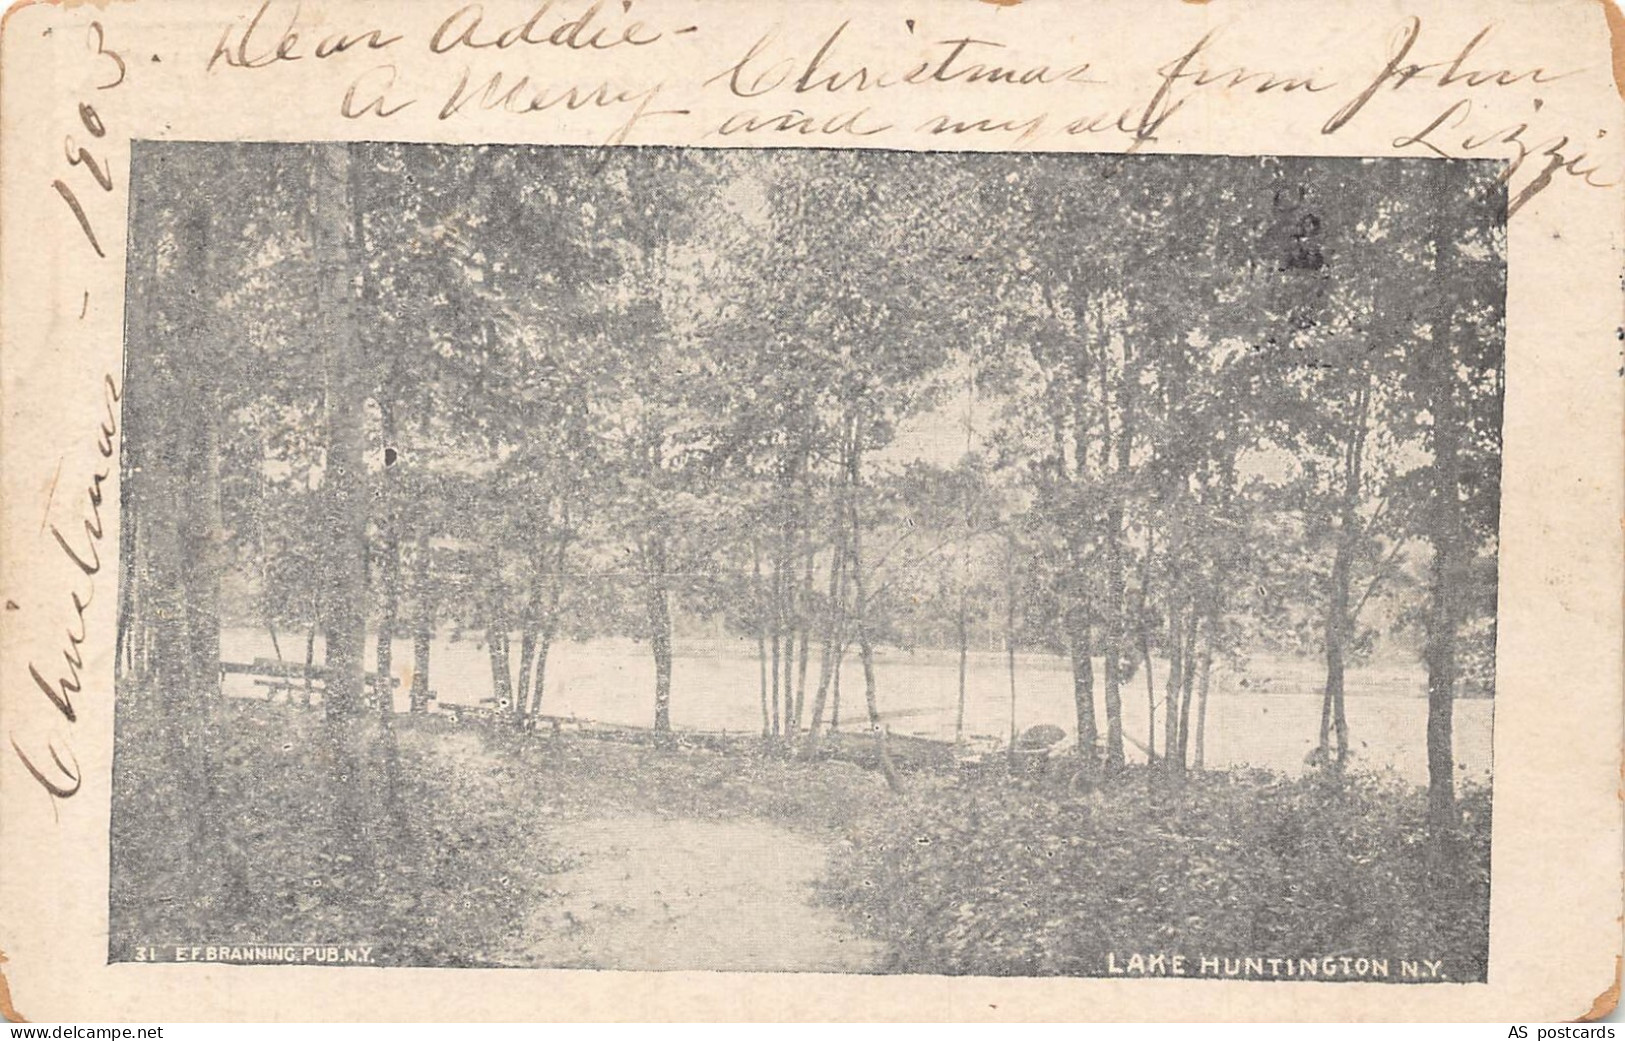 Dear Addie-
A Merry Christmas from John
and myself
Lizzie
Christmas - 1903.
31 E.F. BRANNING. PUB. N.Y.
LAKE HUNTINGTON N.Y.
AS postcards